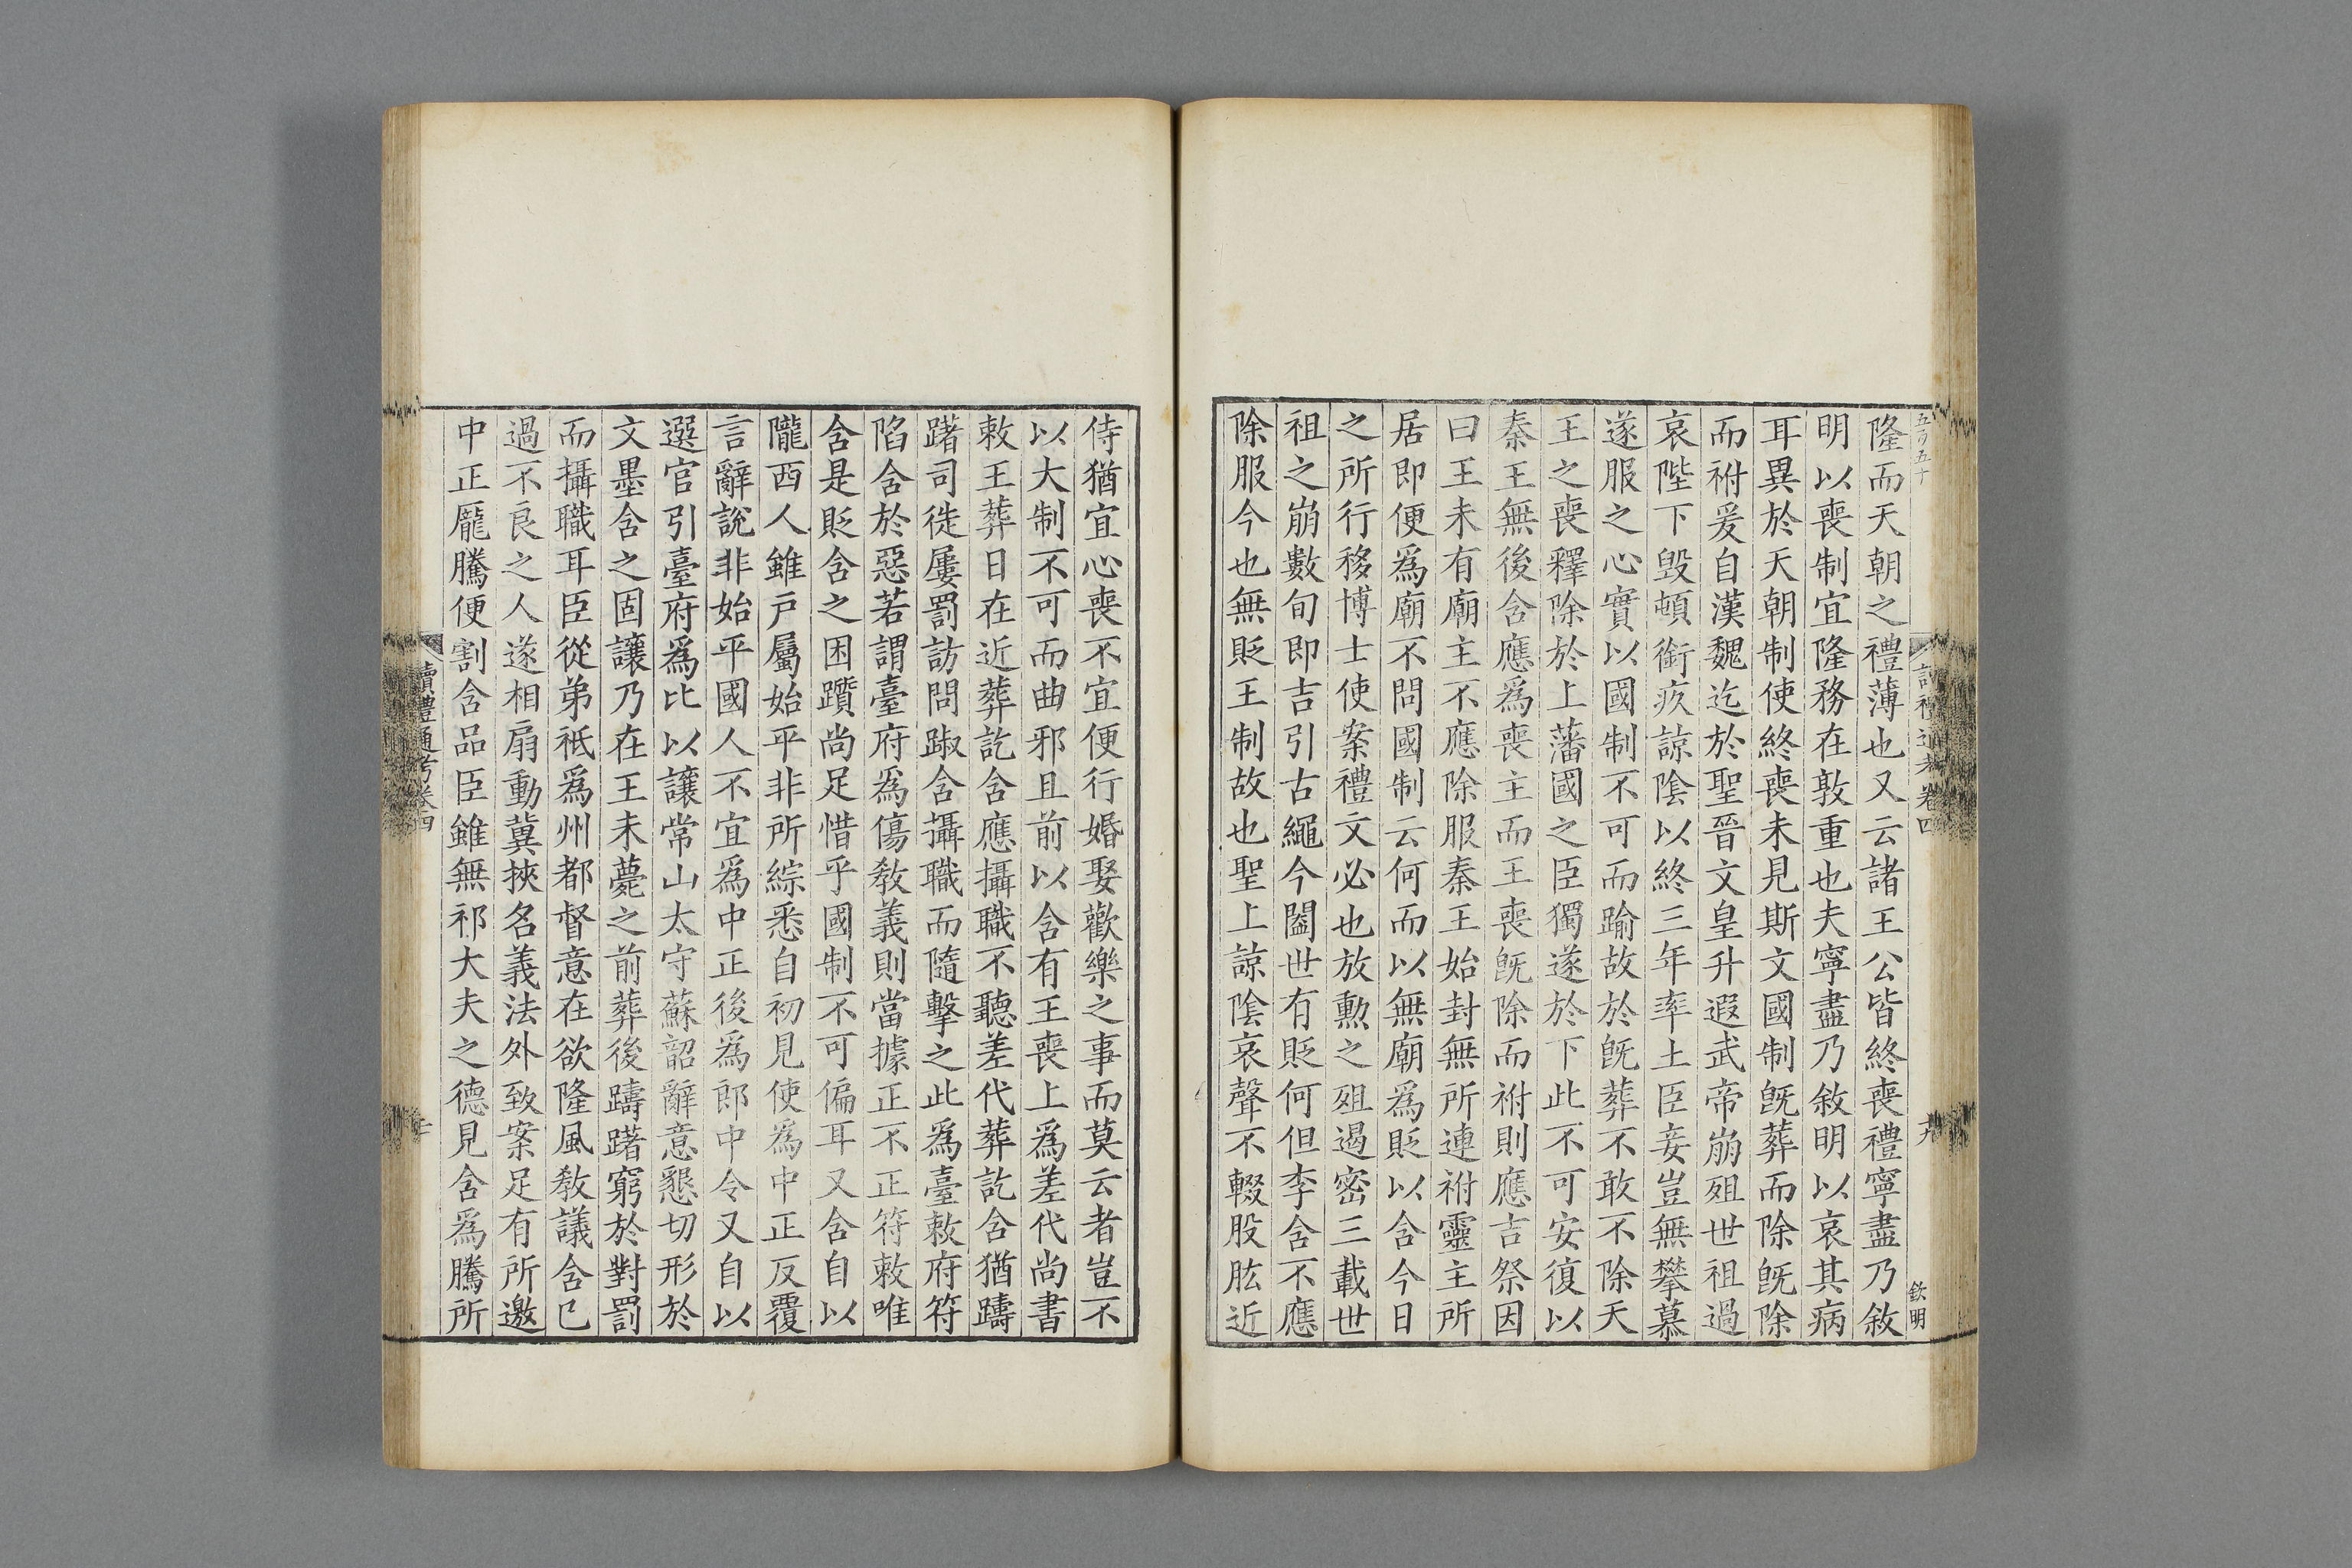 五百五十
讀禮通考卷四
十九
欽明
隆而天朝之禮薄也又云諸王公皆終喪禮寧盡乃敘
明以喪制宜隆務在敦重也夫寧盡乃敘明以哀其病
耳異於天朝制使終喪未見斯文國制旣葬而除旣除
而祔爰自漢魏迄於聖晉文皇升遐武帝崩殂世祖過
哀陛下毁頓銜疚諒隂以終三年率土臣妾豈無攀慕
遂服之心實以國制不可而踰故於旣葬不敢不除天
王之喪釋除於上藩國之臣獨遂於下此不可安復以
秦王無後含應爲喪主而王喪旣除而祔則應吉祭因
曰王未有廟主不應除服秦王始封無所連祔靈主所
居即便爲廟不問國制云何而以無廟爲貶以含今日
之所行移博士使案禮文必也放勲之殂遏密三載世
祖之崩數旬即吉引古繩今闔世有貶何但李含不應
除服今也無貶王制故也聖上諒隂哀聲不輟股肱近
侍猶宜心喪不宜便行婚娶歡樂之事而莫云者豈不
以大制不可而曲邪且前以含有王喪上爲差代尚書
敕王葬日在近葬訖含應攝職不聽差代葬訖含猶躊
躇司徒屢罰訪問踧含攝職而隨擊之此爲臺敕府符
陷含於惡若謂臺府爲傷敎義則當據正不正符敕唯
含是貶含之困躓尚足惜乎國制不可偏耳又含自以
隴西人雖戸屬始平非所綜悉自初見使爲中正反覆
言辭說非始平國人不宜爲中正後爲郎中令又自以
選官引臺府爲比以讓常山太守蘇韶辭意懇切形於
文墨含之固讓乃在王未薨之前葬後躊躇窮於對罰
而攝職耳臣從弟祗爲州都督意在欲隆風敎議含已
過不良之人遂相扇動冀挾名義法外致案足有所邀
中正龎騰便割含品臣雖無祁大夫之德見含爲騰所
讀禮通考卷四